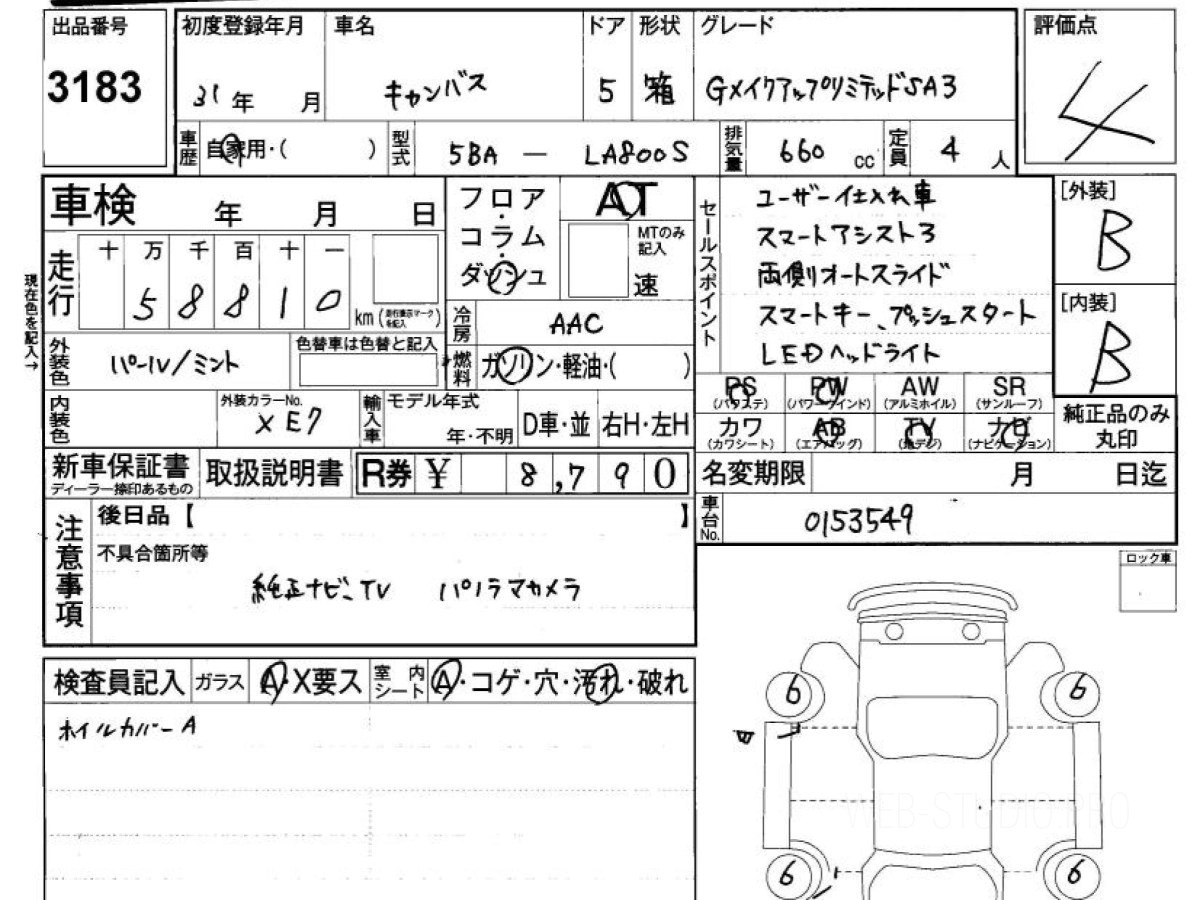 出品番号 初度登録年月 車名 ドア 形状 グレード 評価点
3183 31年 月 キャンバス 5 箱 GメイクアップリミテッドSA3 4
車歴 自家用・( ) 型式 5BA — LA800S 排気量 660 cc 定員 4 人
車検 年 月 日
フロア・コラム・ダッシュ
AT
MTのみ記入
速
セールスポイント
ユーザー仕入れ車
スマートアシスト3
両側オートスライド
スマートキー、プッシュスタート
LEDヘッドライト
[外装]
B
[内装]
B
現在色を記入→
走行 十 万 千 百 十 一
5 8 8 1 0 km (走行表示マークを記入)
冷房 AAC
外装色 パール/ミント 色替車は色替と記入
燃料 ガソリン・軽油・( )
内装色 外装カラーNo. XE7 輸入車 モデル年式 年・不明 D車・並 右H・左H
PS (パワステ) PW (パワーウインド) AW (アルミホイル) SR (サンルーフ)
カワ (カワシート) AB (エアバッグ) TV (地デジ) ナビ (ナビゲーション)
純正品のみ丸印
新車保証書 ディーラー捺印あるもの 取扱説明書 R券 ¥ 8,790
名変期限 月 日迄
車台No. 0153549
注意事項
後日品【 】
不具合箇所等
純正ナビ、TV パノラマカメラ
ロック車
検査員記入 ガラス A・X要ス 室内シート A・コゲ・穴・汚れ・破れ
ホイルカバーA
6 6
凹
6 6
WEB-STUDIO.PRO